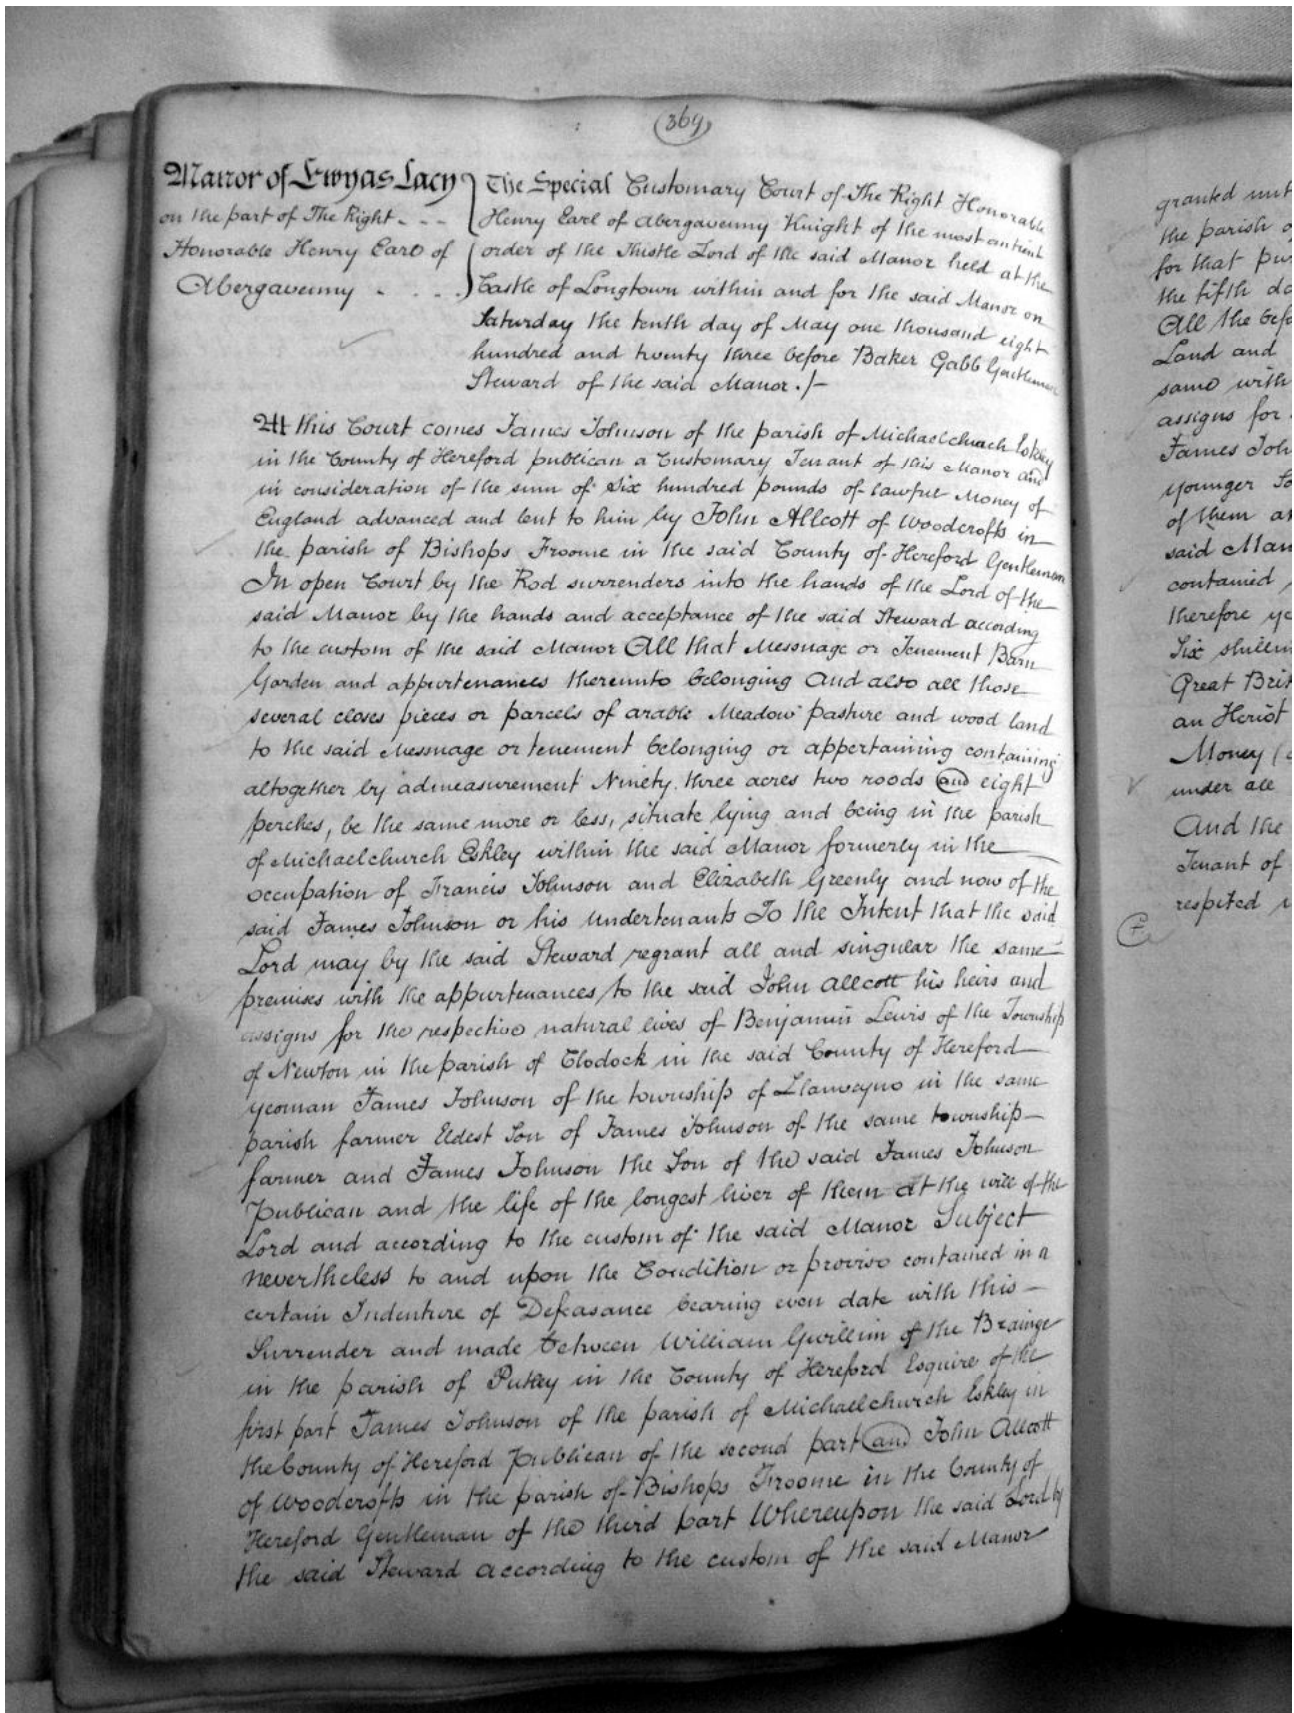 369
Manor of Ewyas Lacy
on the part of The Right - - -
Honorable Henry Earl of
Abergavenny - - - -
The Special Customary Court of The Right Honorable
Henry Earl of Abergavenny Knight of the most antient
order of the Thistle Lord of the said Manor held at the
Castle of Longtown within and for the said Manor on
Saturday the tenth day of May one thousand eight
hundred and twenty three before Baker Gabb Gentleman
Steward of the said Manor./-
At this Court comes James Johnson of the parish of Michaelchurch Eskley
in the County of Hereford publican a Customary Tenant of this Manor and
in consideration of the sum of Six hundred pounds of lawful Money of
England advanced and lent to him by John Allcott of Woodcrofts in
the parish of Bishops Froome in the said County of Hereford Gentleman
In open Court by the Rod surrenders into the hands of the Lord of the
said Manor by the hands and acceptance of the said Steward according
to the custom of the said Manor All that Messuage or Tenement Barn
Garden and appurtenances thereunto belonging And also all those
several closes pieces or parcels of arable Meadow pasture and wood land
to the said Messuage or tenement belonging or appertaining containing
altogether by admeasurement Ninety three acres two roods and eight
perches, be the same more or less, situate lying and being in the parish
of Michaelchurch Eskley within the said Manor formerly in the
occupation of Francis Johnson and Elizabeth Greenly and now of the
said James Johnson or his undertenants To the Intent that the said
Lord may by the said Steward regrant all and singular the same
premises with the appurtenances to the said John Allcott his heirs and
assigns for the respective natural lives of Benjamin Lewis of the Township
of Newton in the parish of Clodock in the said County of Hereford
yeoman James Johnson of the township of Llanveyno in the same
parish farmer Eldest Son of James Johnson of the same township
farmer and James Johnson the Son of the said James Johnson
Publican and the life of the longest liver of them at the will of the
Lord and according to the custom of the said Manor Subject
nevertheless to and upon the Condition or proviso contained in a
certain Indenture of Defeasance bearing even date with this
Surrender and made between William Gwillim of the Brainge
in the parish of Putley in the County of Hereford Esquire of the
first part James Johnson of the parish of Michaelchurch Eskley in
the County of Hereford Publican of the second part and John Allcott
of Woodcrofts in the parish of Bishops Froome in the County of
Hereford Gentleman of the third part Whereupon the said Lord by
the said Steward according to the custom of the said Manor
granted unt
the parish o
for that pur
the fifth da
All the befo
Land and
same with
assigns for
James Joh
younger So
of them at
said Man
contained
therefore ye
Six shillin
Great Brit
an Heriot
Money (
under all
And the
Tenant of
respited